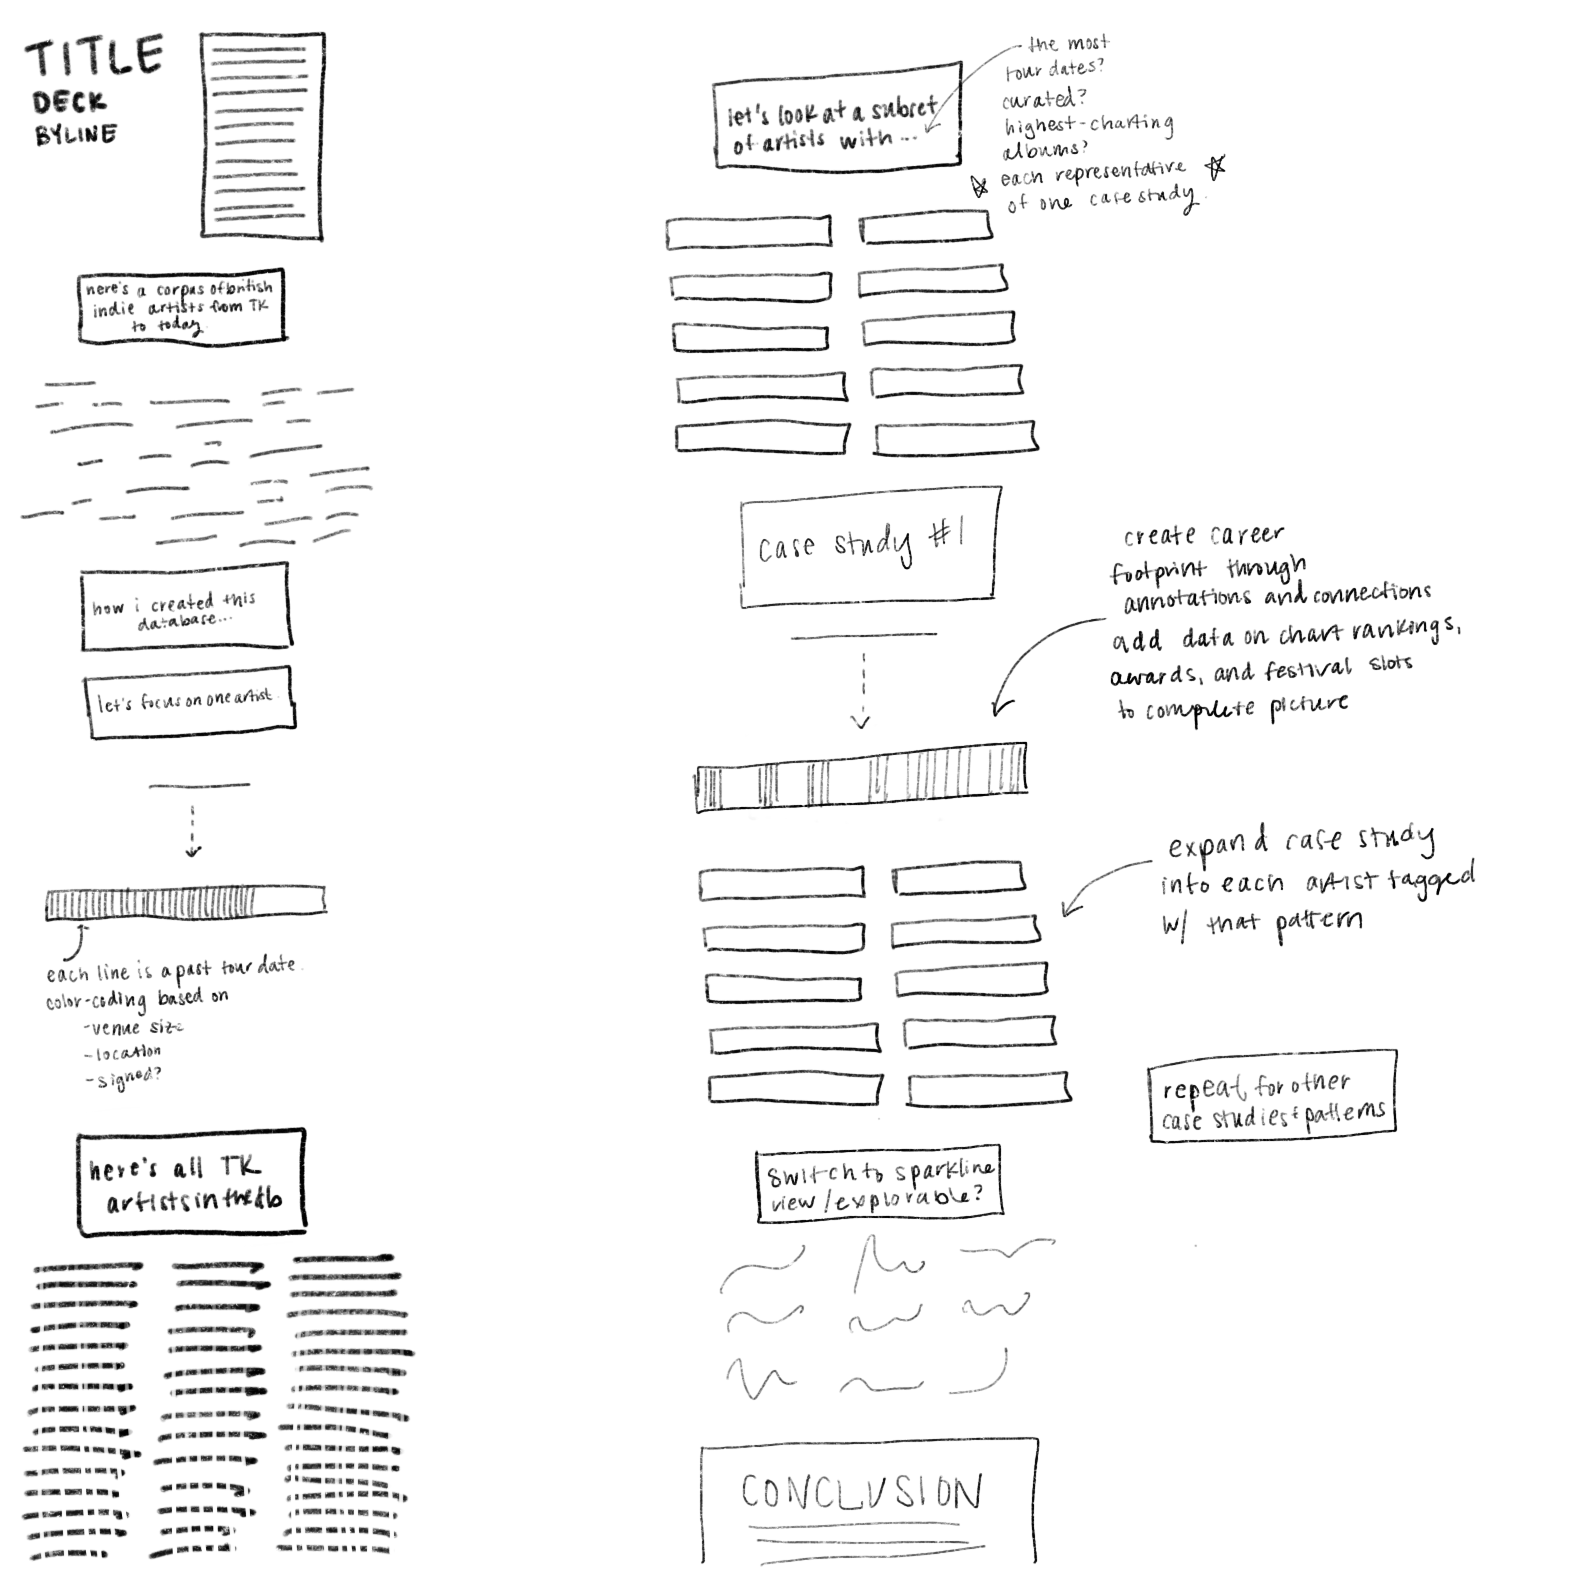 TITLE
DECK
BYLINE
here's a corpus of british
indie artists from TK
to today.
how i created this
database...
let's focus on one artist.
each line is a past tour date.
color-coding based on
-venue size
-location
-signed?
here's all TK
artists in the db
let's look at a subset
of artists with ...
the most
tour dates?
curated?
highest-charting
albums?
each representative
of one case study.
case study #1
create career
footprint through
annotations and connections
add data on chart rankings,
awards, and festival slots
to complete picture
expand case study
into each artist tagged
w/ that pattern
repeat for other
case studies + patterns
switch to sparkline
view/explorable?
CONCLUSION